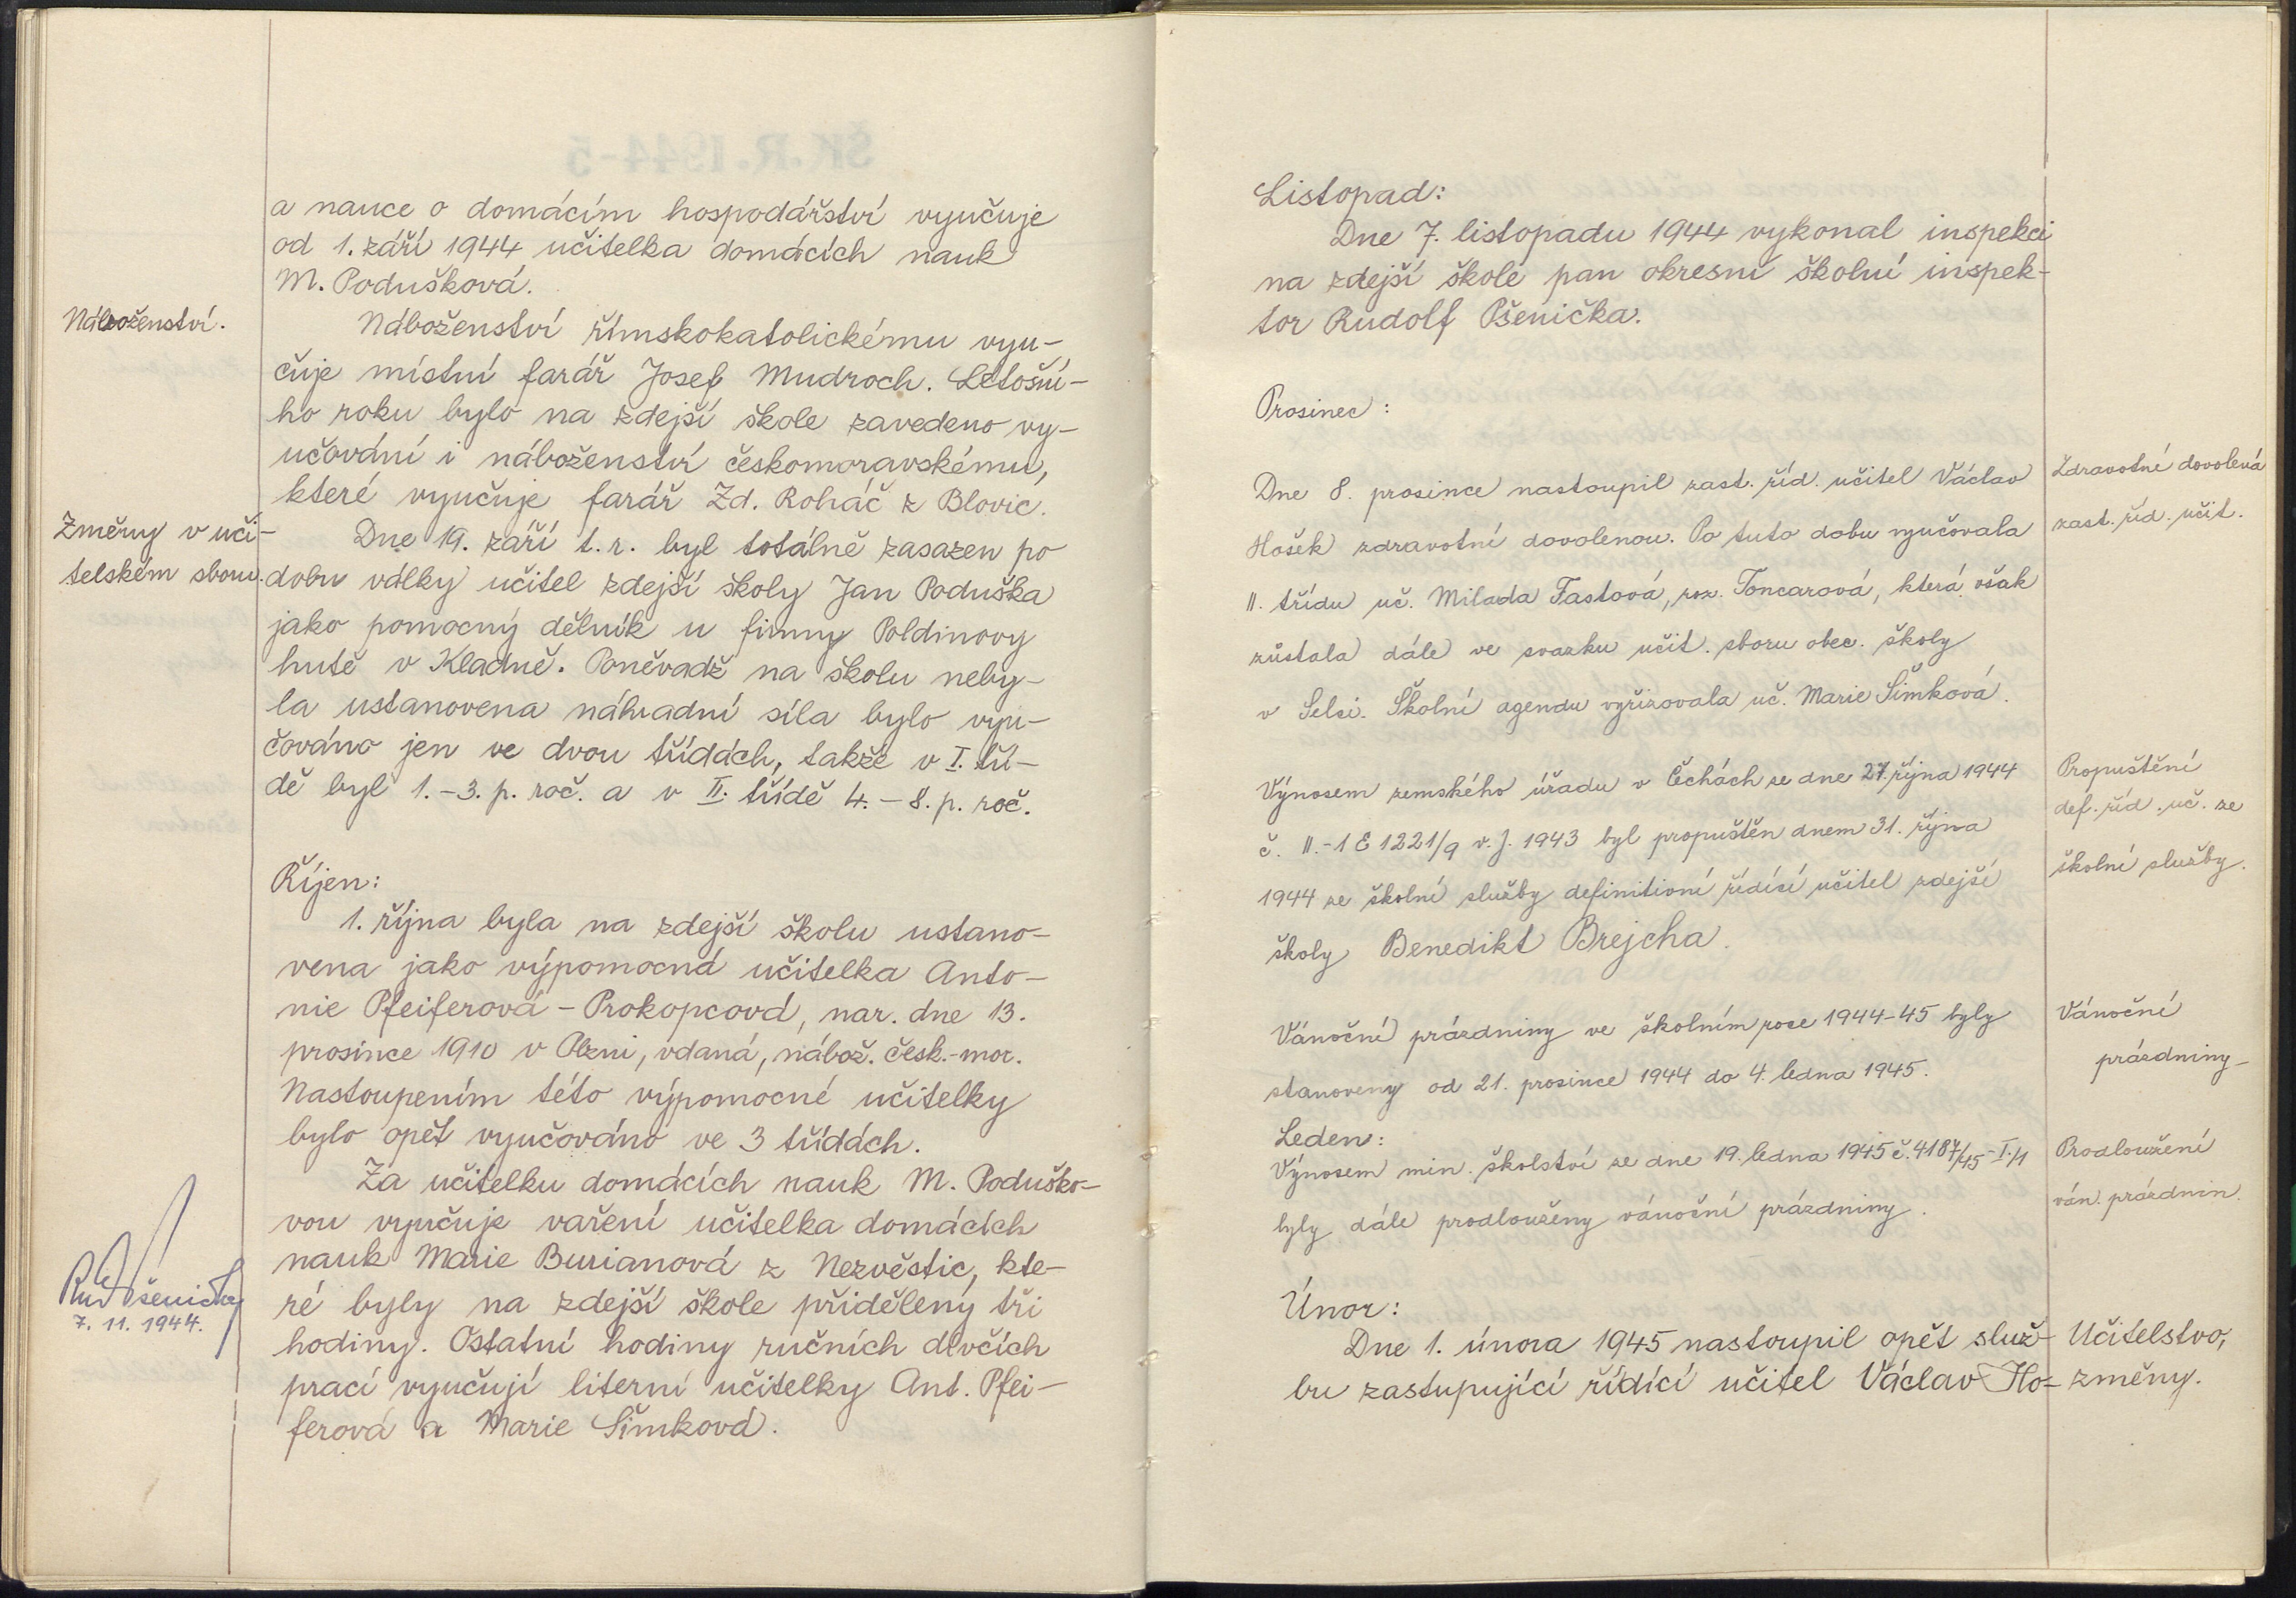 a nauce o domácím hospodářství vyučuje
od 1. září 1944 učitelka domácích nauk
M. Podušková.
Náboženství.
Náboženství římskokatolickému vyu-
čuje místní farář Josef Mudroch. Letošní-
ho roku bylo na zdejší škole zavedeno vy-
učování i náboženství českomoravskému,
které vyučuje farář Zd. Roháč z Blovic.
Změny v uči-
telském sboru.
Dne 19. září t.r. byl totálně zasazen po
dobu války učitel zdejší školy Jan Poduška
jako pomocný dělník u firmy Poldinovy
hutě v Kladně. Poněvadž na školu neby-
la ustanovena náhradní síla bylo vyu-
čováno jen ve dvou třídách, takže v I. tří-
dě byl 1.-3. p. roč. a v II. třídě 4.-8. p. roč.
Říjen:
1. října byla na zdejší školu ustano-
vena jako výpomocná učitelka Anto-
nie Pfeiferová - Prokopcová, nar. dne 13.
prosince 1910 v Plzni, vdaná, nábož. česk.-mor.
Nastoupením této výpomocné učitelky
bylo opět vyučováno ve 3 třídách.
Za učitelku domácích nauk M. Poduško-
vou vyučuje vaření učitelka domácích
nauk Marie Burianová z Nezvěstic, kte-
ré byly na zdejší škole přiděleny tři
hodiny. Ostatní hodiny ručních dívčích
prací vyučují literní učitelky Ant. Pfei-
ferová a Marie Šimková.
Rud Pšenička
7. 11. 1944.
Listopad:
Dne 7. listopadu 1944 vykonal inspekci
na zdejší škole pan okresní školní inspek-
tor Rudolf Pšenička.
Prosinec:
Dne 8. prosince nastoupil zast. říd. učitel Václav
Hošek zdravotní dovolenou. Po tuto dobu vyučovala
II. třídu uč. Milada Fastová, roz. Toncarová, která však
zůstala dále ve svazku učit. sboru obec. školy
v Selci. Školní agendu vyřizovala uč. Marie Šimková.
Zdravotní dovolená
zast. říd. učit.
Výnosem zemského úřadu v Čechách ze dne 27. října 1944
č. II.-1 E 1221/9 v. J. 1943 byl propuštěn dnem 31. října
1944 ze školní služby definitivní řídící učitel zdejší
školy Benedikt Brejcha.
Propuštění
def. říd. uč. ze
školní služby.
Vánoční prázdniny ve školním roce 1944-45 byly
stanoveny od 21. prosince 1944 do 4. ledna 1945.
Vánoční
prázdniny
Leden:
Výnosem min. školství ze dne 19. ledna 1945 č. 4187/45-I./1
byly dále prodlouženy vánoční prázdniny.
Prodloužení
ván. prázdnin.
Únor:
Dne 1. února 1945 nastoupil opět služ-
bu zastupující řídící učitel Václav Ho-
Učitelstvo,
změny.